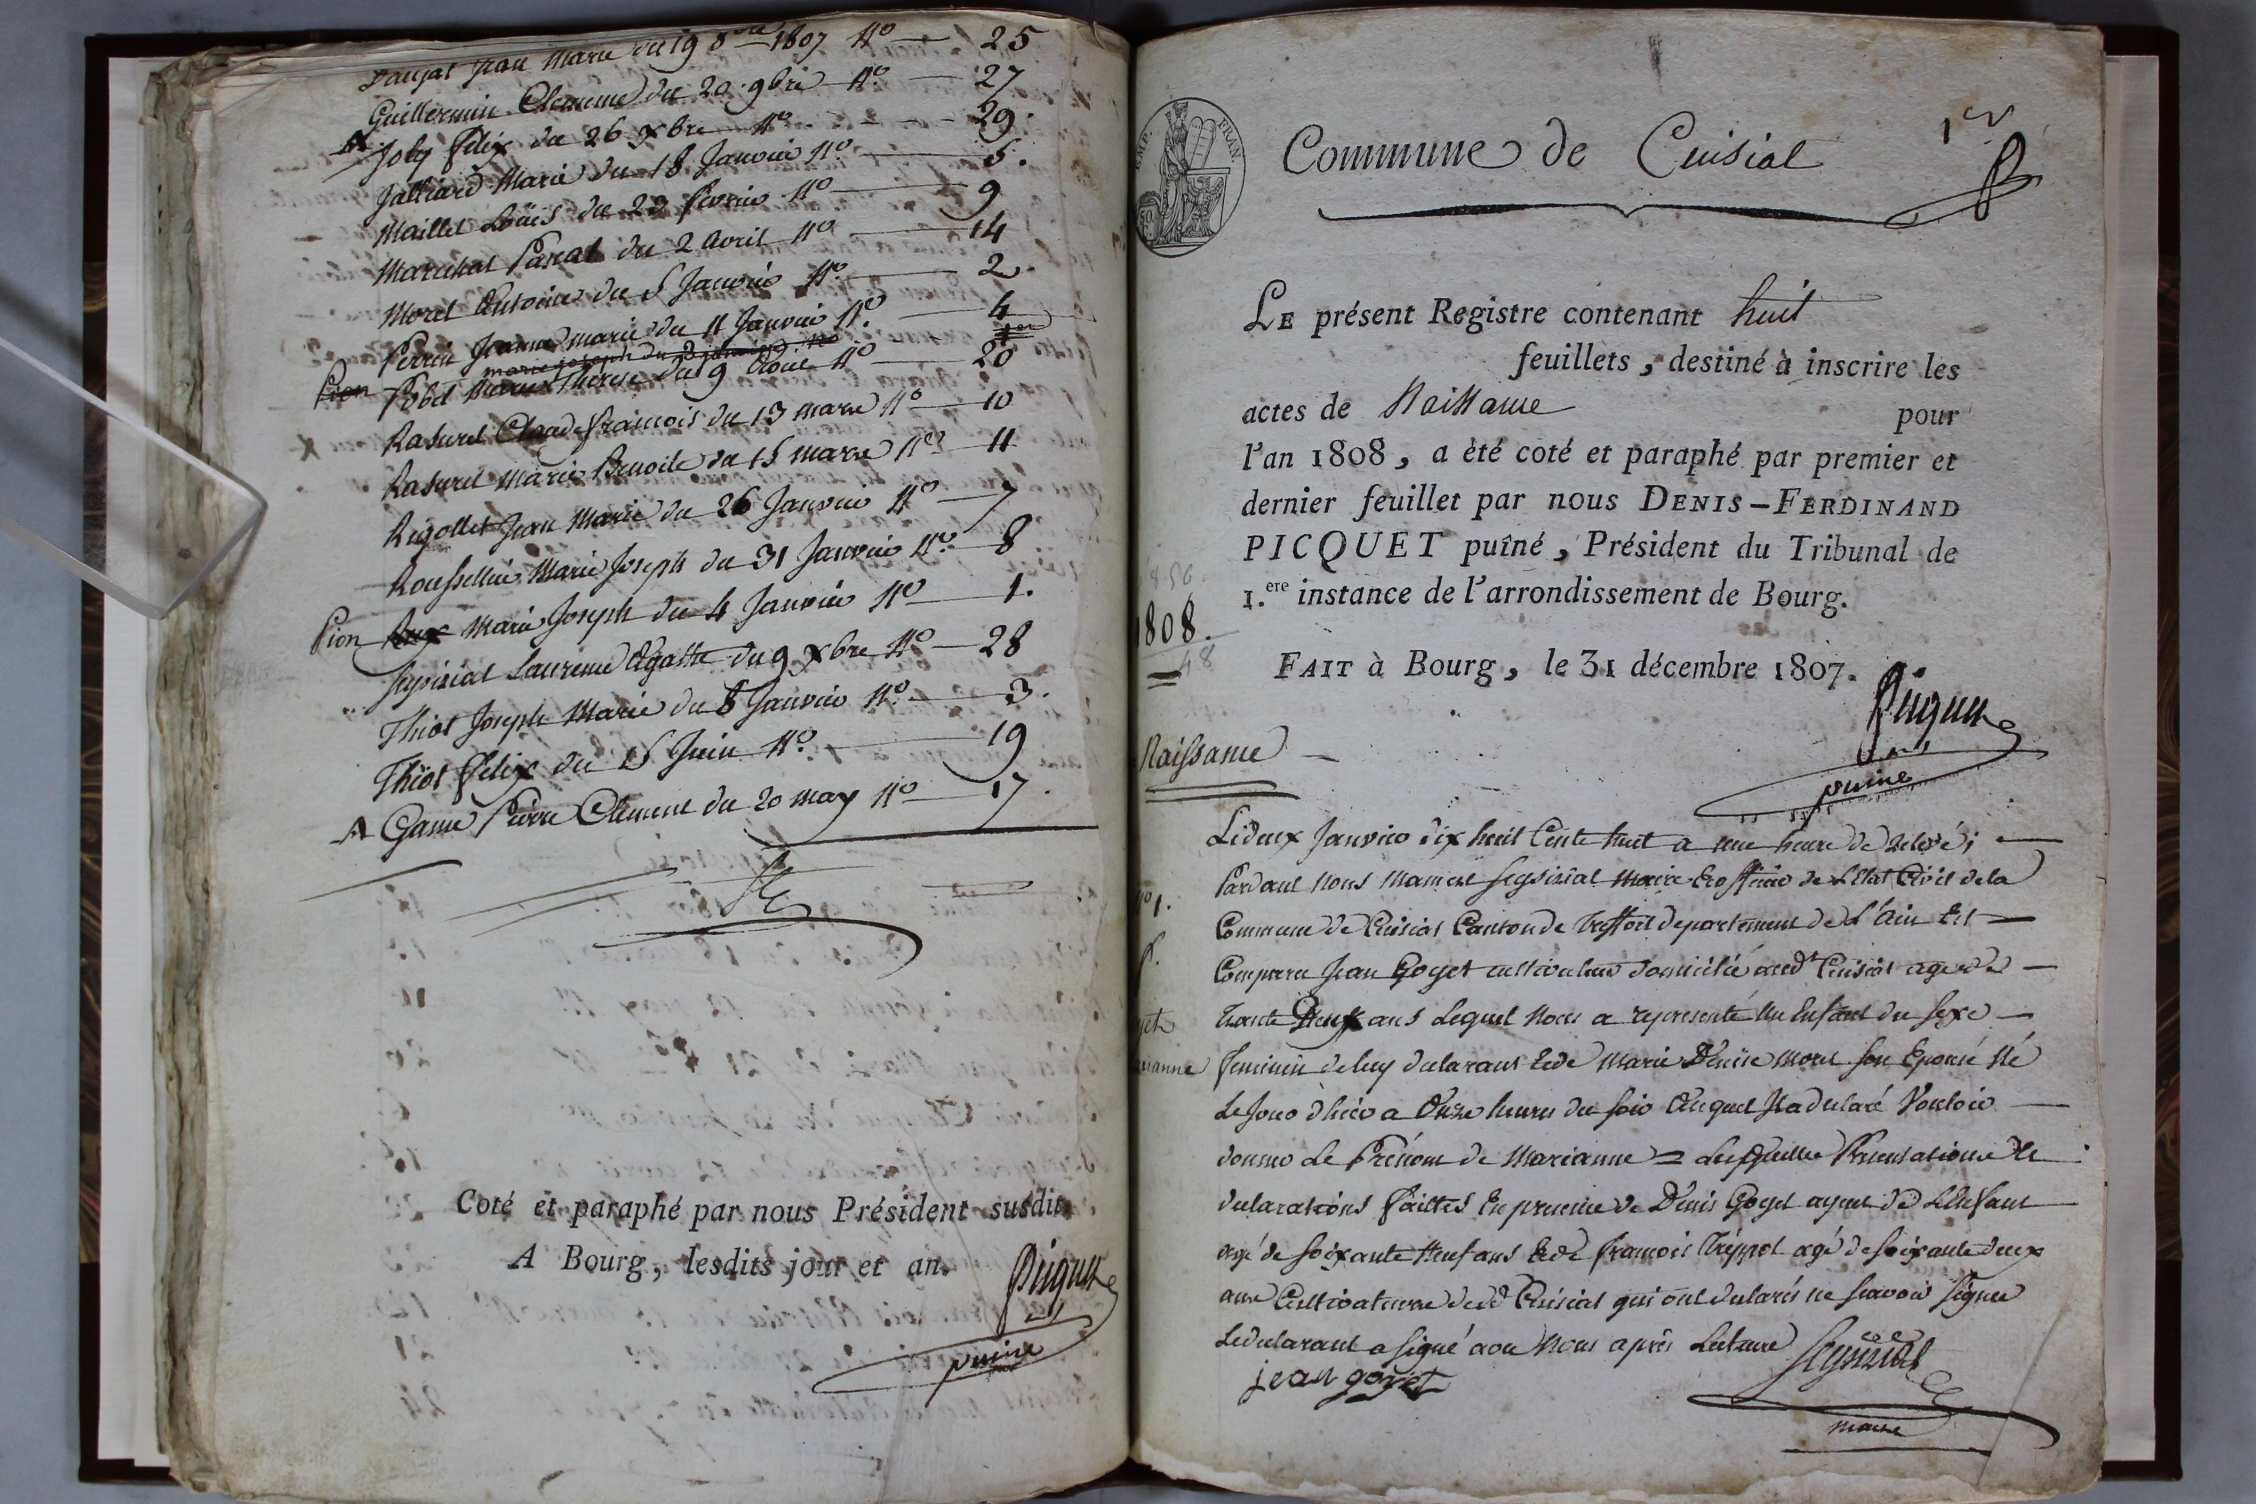 Jean Marie du 19 8bre 1807 No 25
Guillermin Clemence du 20 9bre No 27
A Joly Felix du 26 xbre No 29
Jalliard Marie du 18 Janvier No 5.
Maillet Loüis du 23 fevrier No 9
Marechal Pascal du 2 Avril No 14
Morel Antoine du 5 Janvier No 2
Perrin Jeanne marie du 11 Janvier No 4
marie joseph du 3 janvier No 1er
Pion Pobel Marie Therese du 9 Aout No 20
Rasurel Claude francois du 13 mars No 10
Rasurel Marie Benoite du 15 mars No 11
Rigollet Jean Marie du 26 Janvier No 7
Rousselliu Marie Joseph du 31 Janvier No 8
Pion Marie Joseph du 4 Janvier No 1.
Seysiriat Laurence Agathe du 9 xbre No 28
Thiot Joseph Marie du 8 Janvier No 3.
Thiot Felix du 15 Juin No 19
A Game Pierre Clement du 20 may No 17
Coté et paraphé par nous Président susdit
A Bourg, lesdits jour et an.
Picquet
puîné
EMP. FRAN.
50
Commune de Cuisiat
1er
LE présent Registre contenant huit
feuillets, destiné à inscrire les
actes de Naissance pour
l'an 1808, a été coté et paraphé par premier et
dernier feuillet par nous DENIS-FERDINAND
PICQUET puîné, Président du Tribunal de
1.ere instance de l'arrondissement de Bourg.
1808.
48
FAIT à Bourg, le 31 décembre 1807.
Picquet
puîné
Naissance
Le deux Janvier dix huit Cents huit a une heure de Relevé;
No 1.
Pardant Nous Mamert Seysiriat Maire Eofficier de L'Etat Civil de la
Commune de Cuisiat Canton de Treffort departement de L'Ain Est
Comparu Jean Goyet cultivateur domicilié audt Cuisiat agé de
Trante Neuf ans Lequel Nous a representé Un Enfant du Sexe
feminin de luy declarant Et de Marie Denise Morel son Epouse Né
Le Jour d'hier a Onze heures du soir Auquel Il a declaré Vouloir
donner Le Prénom de Marianne = Lesquelles Presentation et
declarations faittes En presence de Denis Goyet ayeul de L'Enfant
agé de soixante Neuf ans Et de francois Treppoz agé de soixante deux
ans Cultivateurs dudt Cuisiat qui ont declarés ne scavoir signer
Le declarant a signé avec Nous après Lecture
Seysiriat
jean goyet
maire